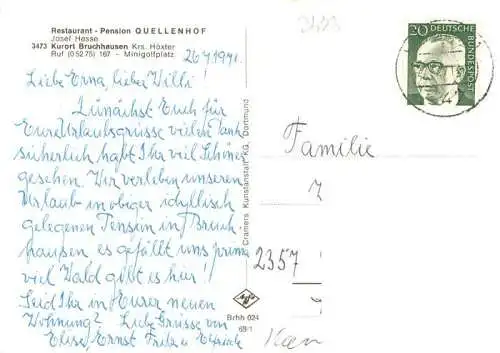 Restaurant - Pension QUELLENHOF
Josef Hesse
3473 Kurort Bruchhausen Krs. Höxter
Ruf (0 52 75) 167 - Minigolfplatz
26.7.1971.
Liebe Erna, lieber Willi!
Zunächst Euch für
Eure Urlaubsgrüsse vielen Dank
sicherlich habt Ihr viel Schönes
gesehen. Wir verleben unseren
Urlaub in obiger idyllisch
gelegenen Pension in Bruch-
hausen es gefällt uns prima
viel Wald gibt es hier!
Seid Ihr in Eurer neuen
Wohnung? Liebe Grüsse von
Elise, Ernst Fritz u
Cramers Kunstanstalt KG, Dortmund
Agfa
Brhh 024
68/1
20
DEUTSCHE BUNDESPOST
Familie
2357